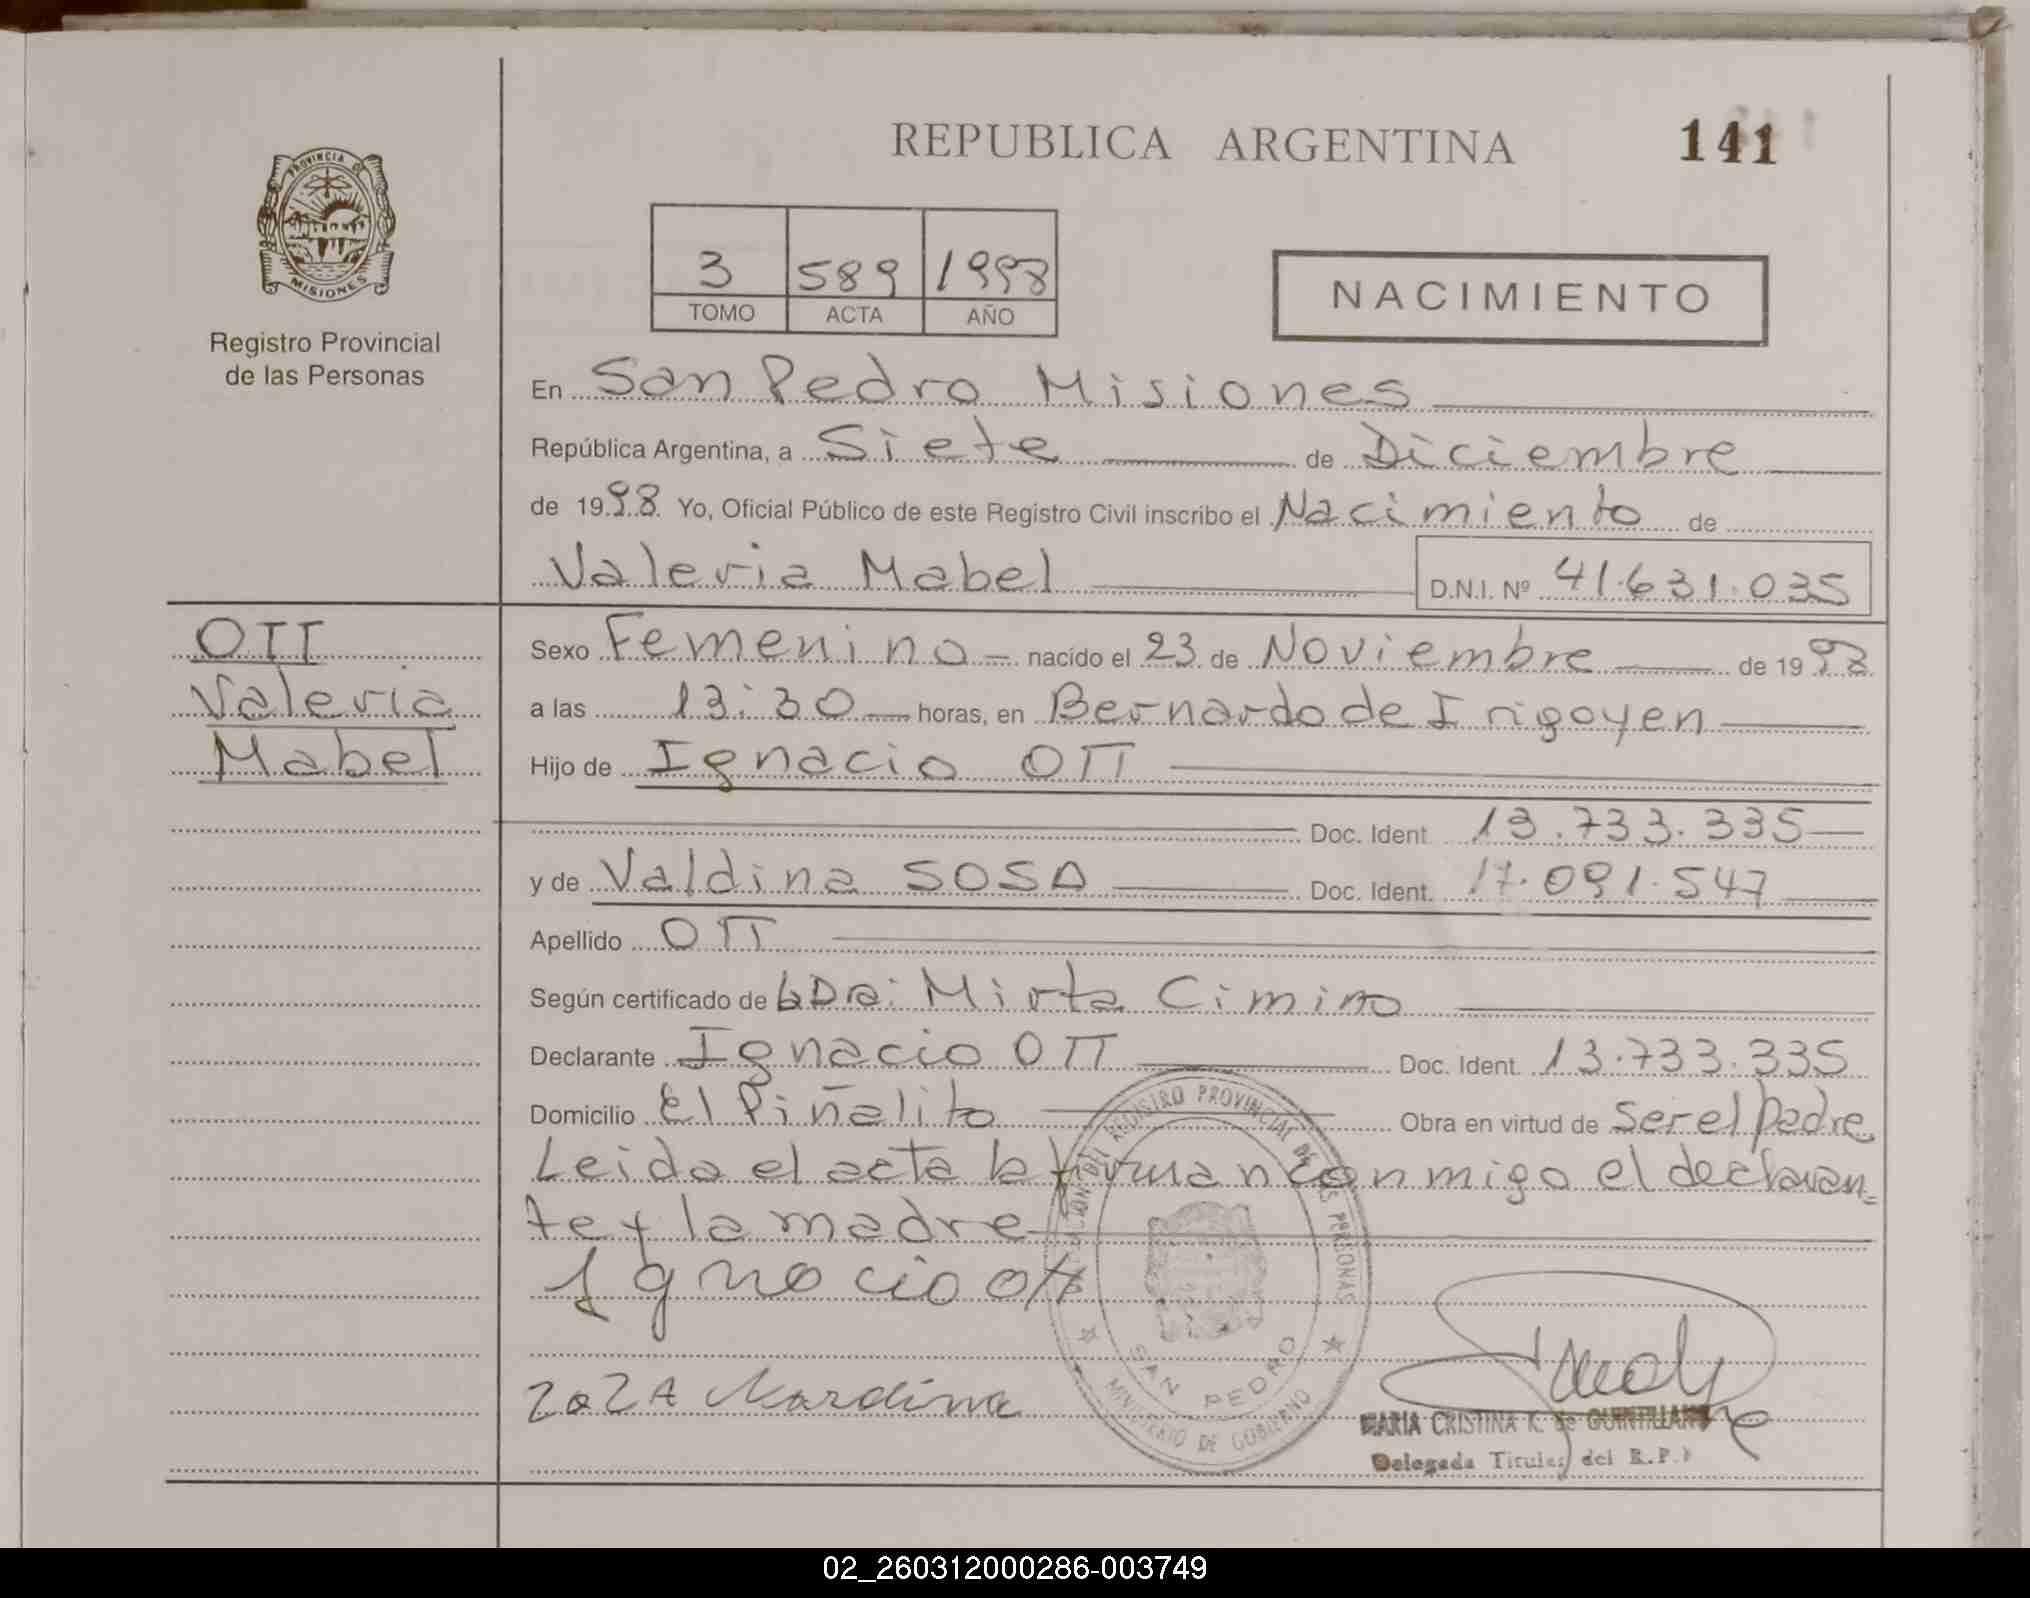 REPUBLICA ARGENTINA
141
PROVINCIA DE
MISIONES
Registro Provincial
de las Personas
3 589 1998
TOMO ACTA AÑO
NACIMIENTO
En San Pedro Misiones
República Argentina, a Siete de Diciembre
de 1998 Yo, Oficial Público de este Registro Civil inscribo el Nacimiento de
Valeria Mabel D.N.I. Nº 41.631.035
OTT
Valeria
Mabel
Sexo Femenino nacido el 23 de Noviembre de 1998
a las 13:30 horas, en Bernardo de Irigoyen
Hijo de Ignacio OTT
Doc. Ident. 13.733.335
y de Valdina SOSA Doc. Ident. 17.091.547
Apellido OTT
Según certificado de la Dra: Mirta Cimino
Declarante Ignacio OTT Doc. Ident. 13.733.335
Domicilio El Piñalito Obra en virtud de Ser el padre
Leida el acta la firman conmigo el declaran=
te y la madre
Ignacio ott
DEL REGISTRO PROVINCIAL DE LAS PERSONAS
SAN PEDRO
MINISTERIO DE GOBIERNO
MARIA CRISTINA K. de QUINTILLAN
Delegada Titular del R.P.P
02_260312000286-003749